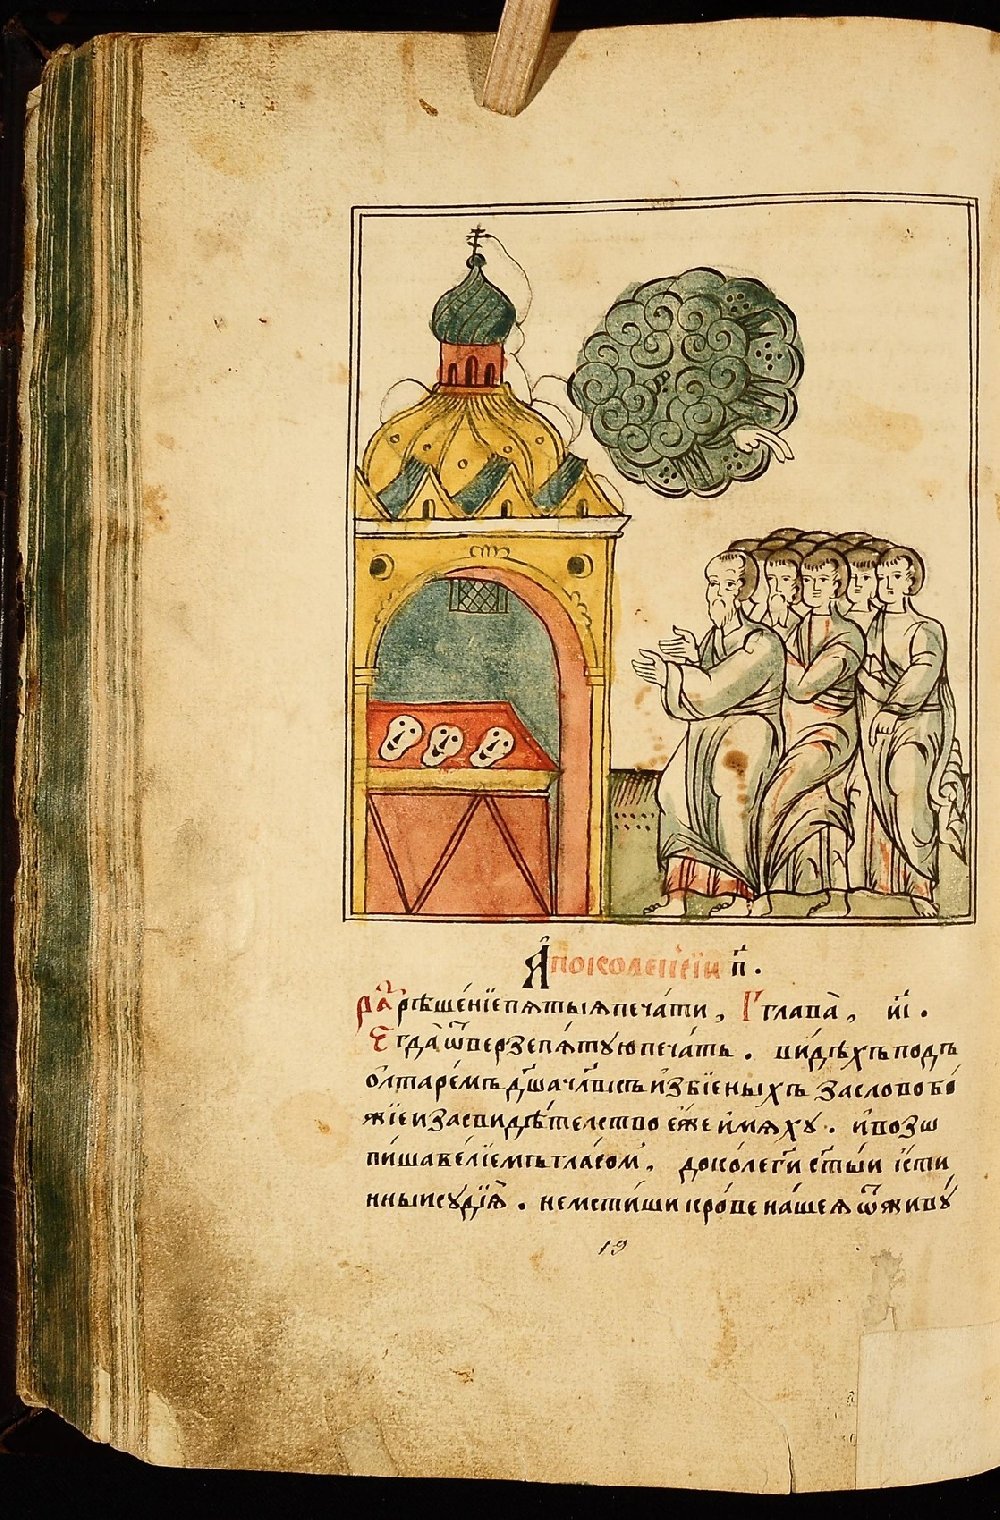 Апокалепсїи п҃.
Раꙁрѣше́нїе пѧтыѧ печа́ти, Г глава̀, и҃і.
Є҆гда̀ ѿверзе пѧ́тую печа́ть. ви́дѣхъ подъ
о҆лтаре́мъ дш҃а чл҃вчскъ и҆збїеныхъ за слово бо́
жїе и за свидѣ́телство е҆́же и҆мѧ́ху. и҆ возꙍ
пи́ша ве́лїемъ гла́сом, доко́ле гдⷭ҇и ст҃ы́и и҆́сти
нныи судїѧ̀. не мсти́ши кро́ве на́шеѧ ѿ живу́
19